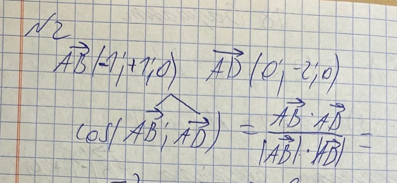 №2
AB(-1;+1;0) AD(0;-2;0)
cos(AB; AD) = AB·AD / |AB|·|AD| =